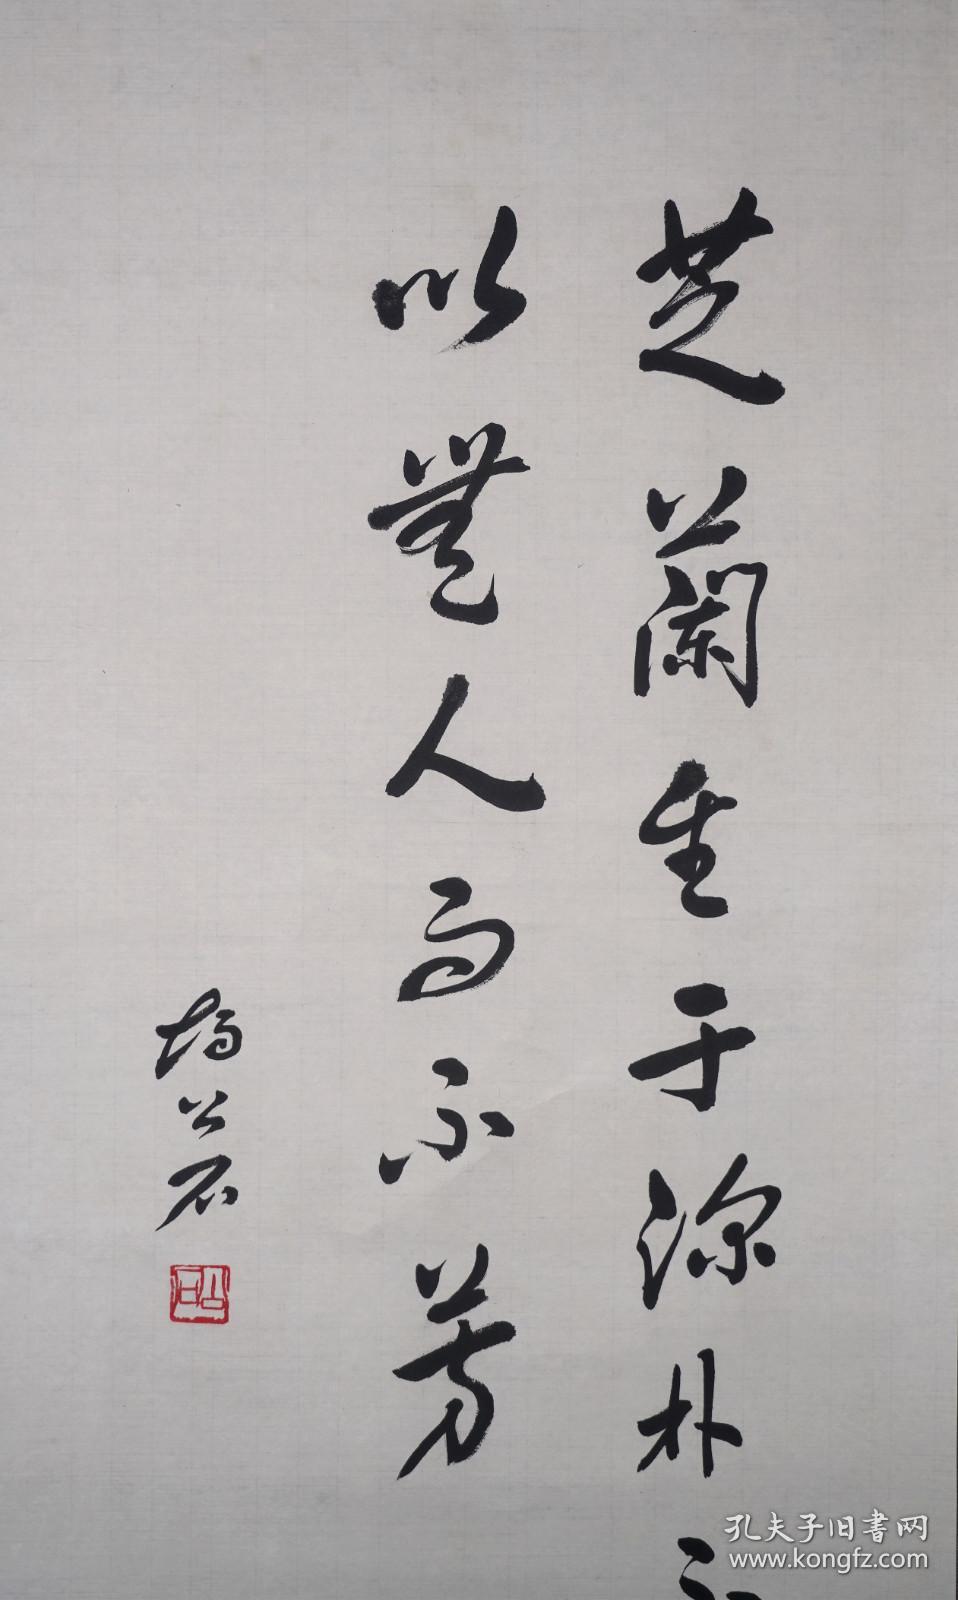 芝蘭生于深林
以無人而不芳
楊公石
公石
孔夫子旧書网
www.kongfz.com